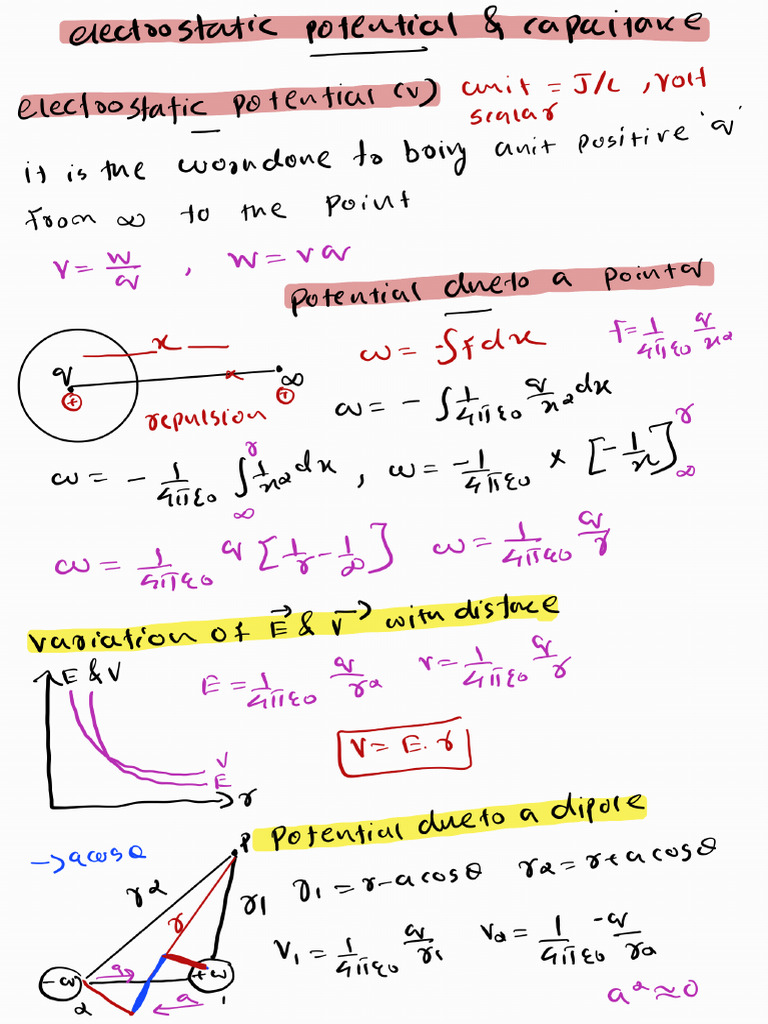 electrostatic potential & capacitance
electrostatic potential (v) unit = J/C , volt
scalar
it is the workdone to bring unit positive 'q'
from ∞ to the point
V = W/q , W = Vq
potential due to a point q
x
q ∞
+ x +
repulsion
ω = -∫F dx F = 1/4πε0 q/x2
ω = - ∫ 1/4πε0 q/x2 dx
ω = - 1/4πε0 ∫∞r 1/x2 dx , ω = -1/4πε0 × [-1/x]r∞
ω = 1/4πε0 q [1/r - 1/∞] ω = 1/4πε0 q/r
variation of E→ & V→ with distace
E & V
E = 1/4πε0 q/r2 V = 1/4πε0 q/r
V = E. r
V
E
r
Potential due to a dipole
→ a cos θ
P
r2 r r1
r1 = r - a cos θ r2 = r + a cos θ
V1 = 1/4πε0 q/r1 V2 = 1/4πε0 -q/r2
-q a +q
2 a 1
a2 ≈ 0